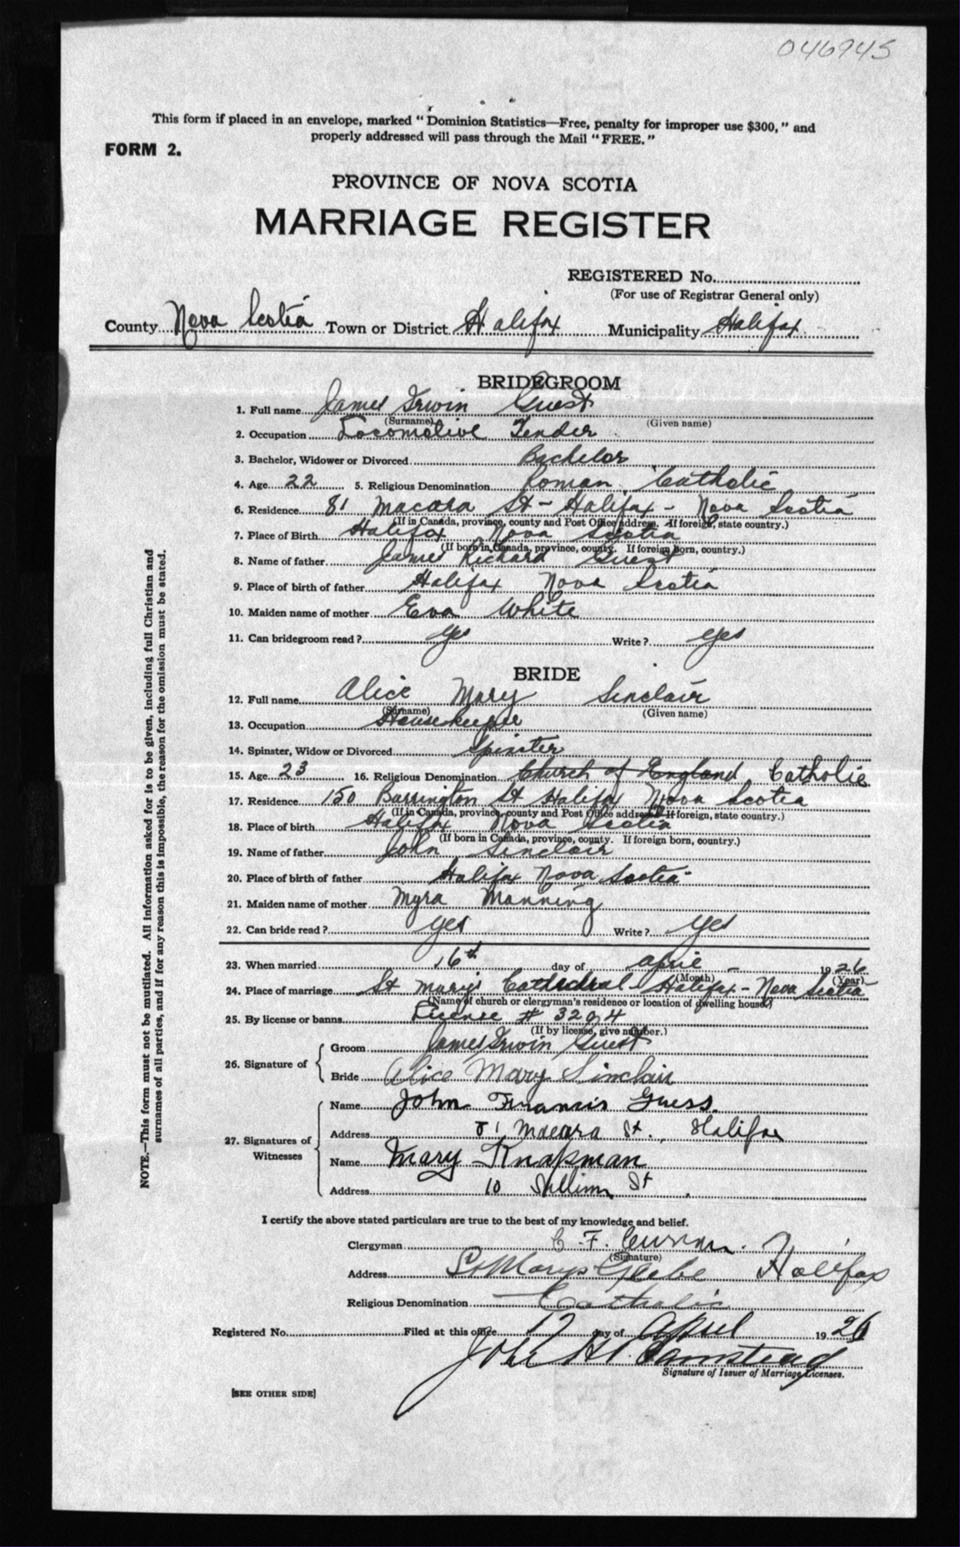 046945
This form if placed in an envelope, marked "Dominion Statistics—Free, penalty for improper use $300," and
properly addressed will pass through the Mail "FREE."
FORM 2.
PROVINCE OF NOVA SCOTIA
MARRIAGE REGISTER
REGISTERED No.
(For use of Registrar General only)
County Nova Scotia Town or District Halifax Municipality Halifax
BRIDEGROOM
1. Full name James Irwin Guest
(Surname) (Given name)
2. Occupation Locomotive Tender
3. Bachelor, Widower or Divorced Bachelor
4. Age 22 5. Religious Denomination Roman Catholic
6. Residence 81 Macara St - Halifax - Nova Scotia
(If in Canada, province, county and Post Office address. If foreign, state country.)
7. Place of Birth Halifax Nova Scotia
(If born in Canada, province, county. If foreign born, country.)
8. Name of father James Richard Guest
9. Place of birth of father Halifax Nova Scotia
10. Maiden name of mother Eva White
11. Can bridegroom read? yes Write? yes
BRIDE
12. Full name Alice Mary Sinclair
(Surname) (Given name)
13. Occupation Housekeeper
14. Spinster, Widow or Divorced Spinster
15. Age 23 16. Religious Denomination Church of England Catholic
17. Residence 150 Barrington St Halifax Nova Scotia
(If in Canada, province, county and Post Office address. If foreign, state country.)
18. Place of birth Halifax Nova Scotia
(If born in Canada, province, county. If foreign born, country.)
19. Name of father John Sinclair
20. Place of birth of father Halifax Nova Scotia
21. Maiden name of mother Myra Manning
22. Can bride read? yes Write? yes
23. When married 16th day of April 1926
(Month) (Year)
24. Place of marriage St Mary's Cathedral Halifax - Nova Scotia
(Name of church or clergyman's residence or location of dwelling house)
25. By license or banns License # 3294
(If by license, give number.)
26. Signature of
Groom James Irwin Guest
Bride Alice Mary Sinclair
27. Signatures of Witnesses
Name John Francis Guess
Address 81 Macara St., Halifax
Name Mary Knapman
Address 10 St
I certify the above stated particulars are true to the best of my knowledge and belief.
Clergyman C. F. Curran. Halifax
(Signature)
Address St Marys Glebe
Religious Denomination Catholic
Registered No. Filed at this office 17 day of April 1926
John H.
Signature of Issuer of Marriage Licenses.
[SEE OTHER SIDE]
NOTE.—This form must not be mutilated. All information asked for is to be given, including full Christian and
surnames of all parties, and if for any reason this is impossible, the reason for the omission must be stated.